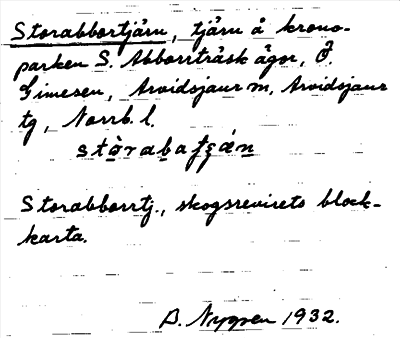 Storabborrtjärn, tjärn å krono-
parken S. Abborrträsk ägor, Ö.
Gimesen, Arvidsjaur sn, Arvidsjaur
tg, Norrb. l.
Storabborrtj., skogsrevirets block-
karta.
B. Nygren 1932.